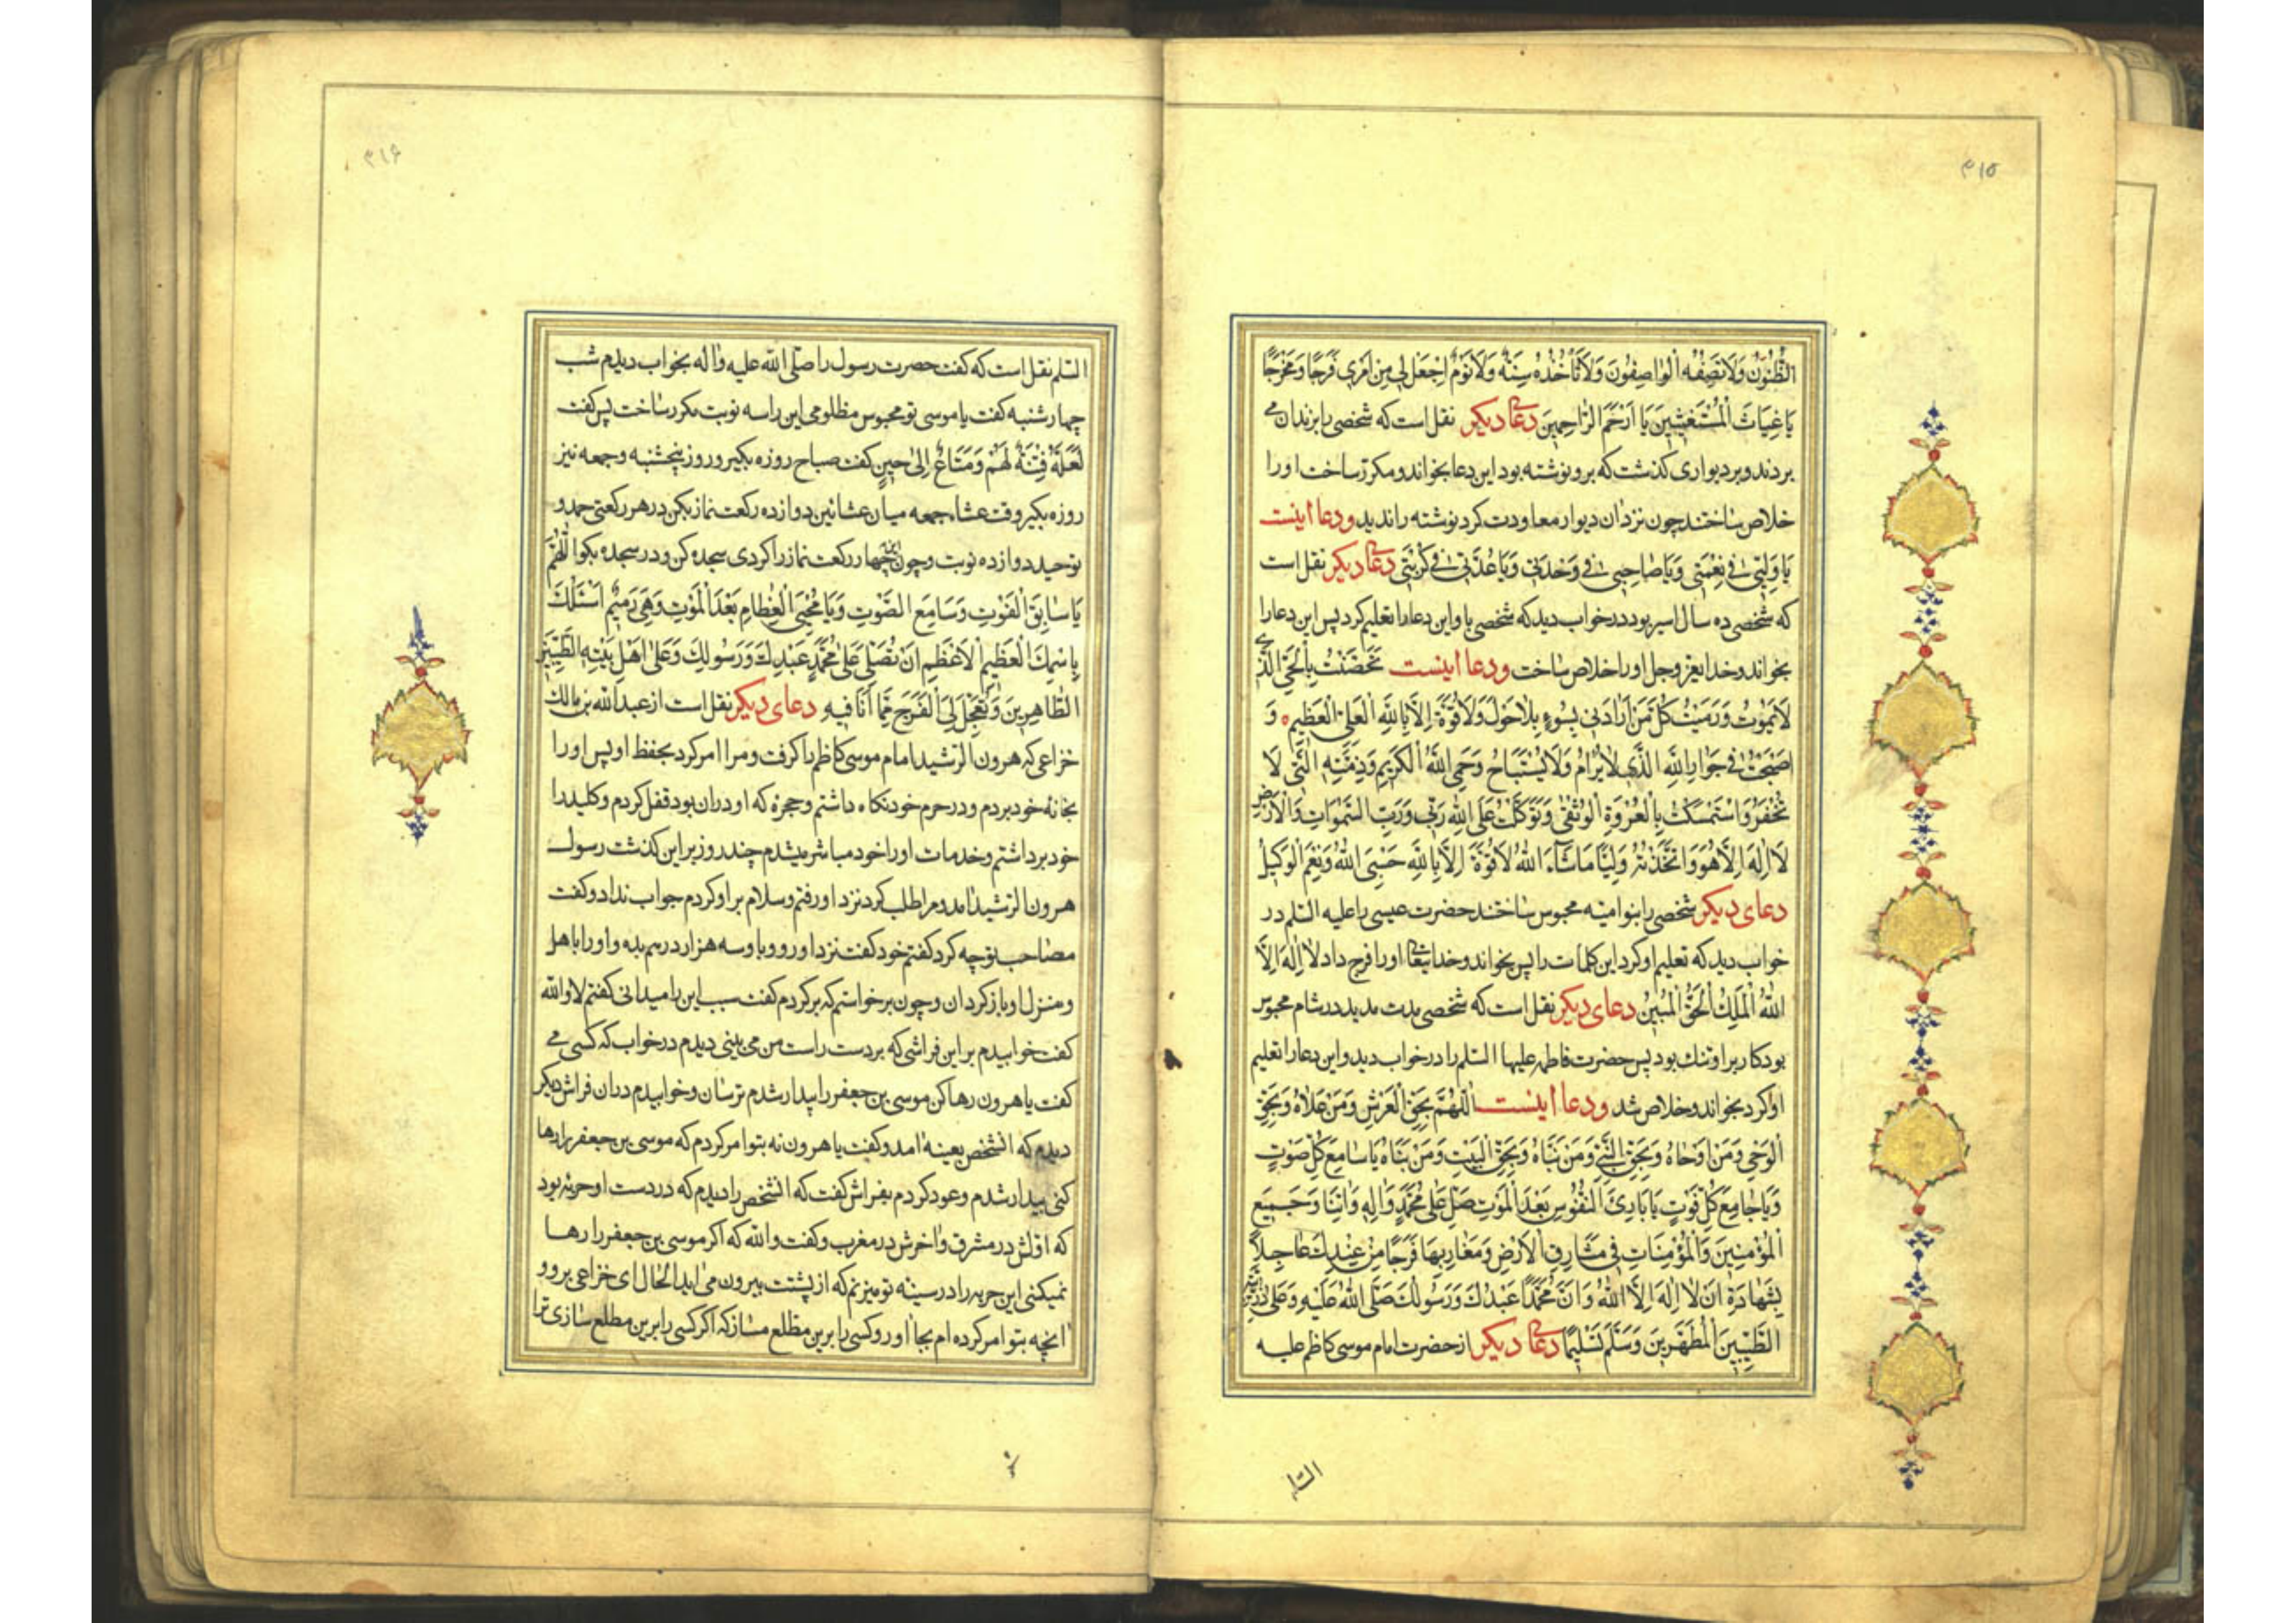 ۳۱۵
الظُّنُونُ وَلَا تَصِفُهُ الْوَاصِفُونَ وَلَا تَأْخُذُهُ سِنَةٌ وَلَا نَوْمٌ اِجْعَلْ لِي مِنْ اَمْرِي فَرَجًا وَمَخْرَجًا
يَا غِيَاثَ الْمُسْتَغِيثِينَ يَا اَرْحَمَ الرَّاحِمِينَ دعای دیکر نقل است که شخصی را بزندان می
بردند و بر دیواری کذشت که برو نوشته بود این دعا بخواند و مکرر ساخت او را
خلاص ساختند چون نزد ان دیوار معاودت کرد نوشته را ندید ودعا اینست
يَا وَلِيِّي فِي نِعْمَتِي وَيَا صَاحِبِي فِي وَحْدَتِي وَيَا عُدَّتِي فِي كُرْبَتِي دعای دیکر نقل است
که شخصی ده سال اسیر بود در خواب دید که شخصی با و این دعا را تعلیم کرد پس این دعا را
بخواند و خدا یعز وجل او را خلاص ساخت ودعا اینست تَحَصَّنْتُ بِالْحَيِّ الَّذِي
لَا يَمُوتُ وَرَمَيْتُ كُلَّ مَنْ اَرَادَنِي بِسُوءٍ بِلَا حَوْلَ وَلَا قُوَّةَ اِلَّا بِاللّٰهِ الْعَلِيِّ الْعَظِيمِ ه وَ
اَصْبَحْتُ فِي جِوَارِ اللّٰهِ الَّذِي لَا يُرَامُ وَلَا يُسْتَبَاحُ وَحِمَى اللّٰهِ الْكَرِيمِ وَذِمَّتِهِ الَّتِي لَا
تُخْفَرُ وَاسْتَمْسَكْتُ بِالْعُرْوَةِ الْوُثْقٰى وَتَوَكَّلْتُ عَلَى اللّٰهِ رَبِّي وَرَبِّ السَّمٰوَاتِ وَالْاَرْضِ
لَا اِلٰهَ اِلَّا هُوَ وَاتَّخَذْتُهُ وَلِيًّا مَا شَاءَ اللّٰهُ لَا قُوَّةَ اِلَّا بِاللّٰهِ حَسْبِيَ اللّٰهُ وَنِعْمَ الْوَكِيلُ
دعای دیکر شخصی را بنوامیه محبوس ساختند حضرت عیسی را علیه السّلم در
خواب دید که تعلیم او کرد این کلمات را پس بخواند و خدا یتعالی او را فرج داد لَا اِلٰهَ اِلَّا
اللّٰهُ الْمَلِكُ الْحَقُّ الْمُبِينُ دعای دیکر نقل است که شخصی مدت مدید در شام محبوس
بود کار بر او تنك بود پس حضرت فاطمه علیها السّلم را در خواب دید و این دعا را تعلیم
او کرد بخواند و خلاص شد ودعا اینست اَللّٰهُمَّ بِحَقِّ الْعَرْشِ وَمَنْ عَلَاهُ وَبِحَقِّ
الْوَحْيِ وَمَنْ اَوْحَاهُ وَبِحَقِّ النَّبِيِّ وَمَنْ نَبَّاَهُ وَبِحَقِّ الْبَيْتِ وَمَنْ بَنَاهُ يَا سَامِعَ كُلِّ صَوْتٍ
وَيَا جَامِعَ كُلِّ فَوْتٍ يَا بَارِئَ النُّفُوسِ بَعْدَ الْمَوْتِ صَلِّ عَلٰى مُحَمَّدٍ وَاٰلِهِ وَاٰتِنَا وَجَمِيعَ
الْمُؤْمِنِينَ وَالْمُؤْمِنَاتِ فِي مَشَارِقِ الْاَرْضِ وَمَغَارِبِهَا فَرَجًا مِنْ عِنْدِكَ عَاجِلًا
بِشَهَادَةِ اَنْ لَا اِلٰهَ اِلَّا اللّٰهُ وَاَنَّ مُحَمَّدًا عَبْدُكَ وَرَسُولُكَ صَلَّى اللّٰهُ عَلَيْهِ وَعَلٰى ذُرِّيَّتِهِ
الطَّيِّبِينَ الْمُطَهَّرِينَ وَسَلَّمَ تَسْلِيمًا دعای دیکر از حضرت امام موسی کاظم علیه
السّلم
۳۱۶
السّلم نقل است که کفت حضرت رسول را صلّی اللّه علیه واٰله بخواب دیدم شب
چهارشنبه کفت یا موسی تو محبوس مظلومی این را سه نوبت مکرر ساخت پس کفت
لَعَلَّهُ فِتْنَةٌ لَهُمْ وَمَتَاعٌ اِلٰى حِينٍ کفت صباح روزه بکیر و روز پنجشنبه و جمعه نیز
روزه بکیر و وقت عشاء جمعه میان عشائین دوازده رکعت نماز بکن در هر رکعتی حمد و
توحید دوازده نوبت و چون چهار رکعت نماز را کردی سجده کن و در سجده بکو اَللّٰهُمَّ
يَا سَابِقَ الْفَوْتِ وَسَامِعَ الصَّوْتِ وَيَا مُحْيِيَ الْعِظَامِ بَعْدَ الْمَوْتِ وَهِيَ رَمِيمٌ اَسْئَلُكَ
بِاسْمِكَ الْعَظِيمِ الْاَعْظَمِ اَنْ تُصَلِّيَ عَلٰى مُحَمَّدٍ عَبْدِكَ وَرَسُولِكَ وَعَلٰى اَهْلِ بَيْتِهِ الطَّيِّبِينَ
الطَّاهِرِينَ وَتُعَجِّلَ لِيَ الْفَرَجَ مِمَّا اَنَا فِيهِ دعای دیکر نقل است از عبداللّه بن مالك
خزاعی که هرون الرّشید امام موسی کاظم را کرفت و مرا امر کرد بحفظ او پس او را
بخانه خود بردم و در حرم خود نکاه داشتم و حجرۀ که او در ان بود قفل کردم و کلید را
خود برداشتم و خدمات او را خود مباشر میشدم چند روز بر این کذشت رسول
هرون الرّشید امد و مرا طلب کرد نزد او رفتم و سلام بر او کردم جواب نداد و کفت
مصاحب تو چه کرد کفتم خود کفت نزد او رو و باو سه هزار درهم بده و او را باهل
و منزل او باز کردان و چون برخواستم که بر کردم کفت سبب این را میدانی کفتم لا واللّه
کفت خوابیدم بر این فراشی که بر دست راست من می بینی دیدم در خواب که کسی می
کفت یا هرون رها کن موسی بن جعفر را بیدار شدم ترسان و خوابیدم در ان فراش دیکر
دیدم که انشخص بعینه امد و کفت یا هرون نه بتو امر کردم که موسی بن جعفر را رها
کنی بیدار شدم و عود کردم بفراش کفت که انشخص را دیدم که در دست او حربه بود
که اوّلش در مشرق و اٰخرش در مغرب و کفت واللّه که اکر موسی بن جعفر را رها
نمیکنی این حربه را در سینۀ تو میزنم که از پشتت بیرون می اید الحال ای خزاعی برو و
انچه بتو امر کرده ام بجا اور و کسی را برین مطلع مساز که اکر کسی را برین مطلع سازی ترا